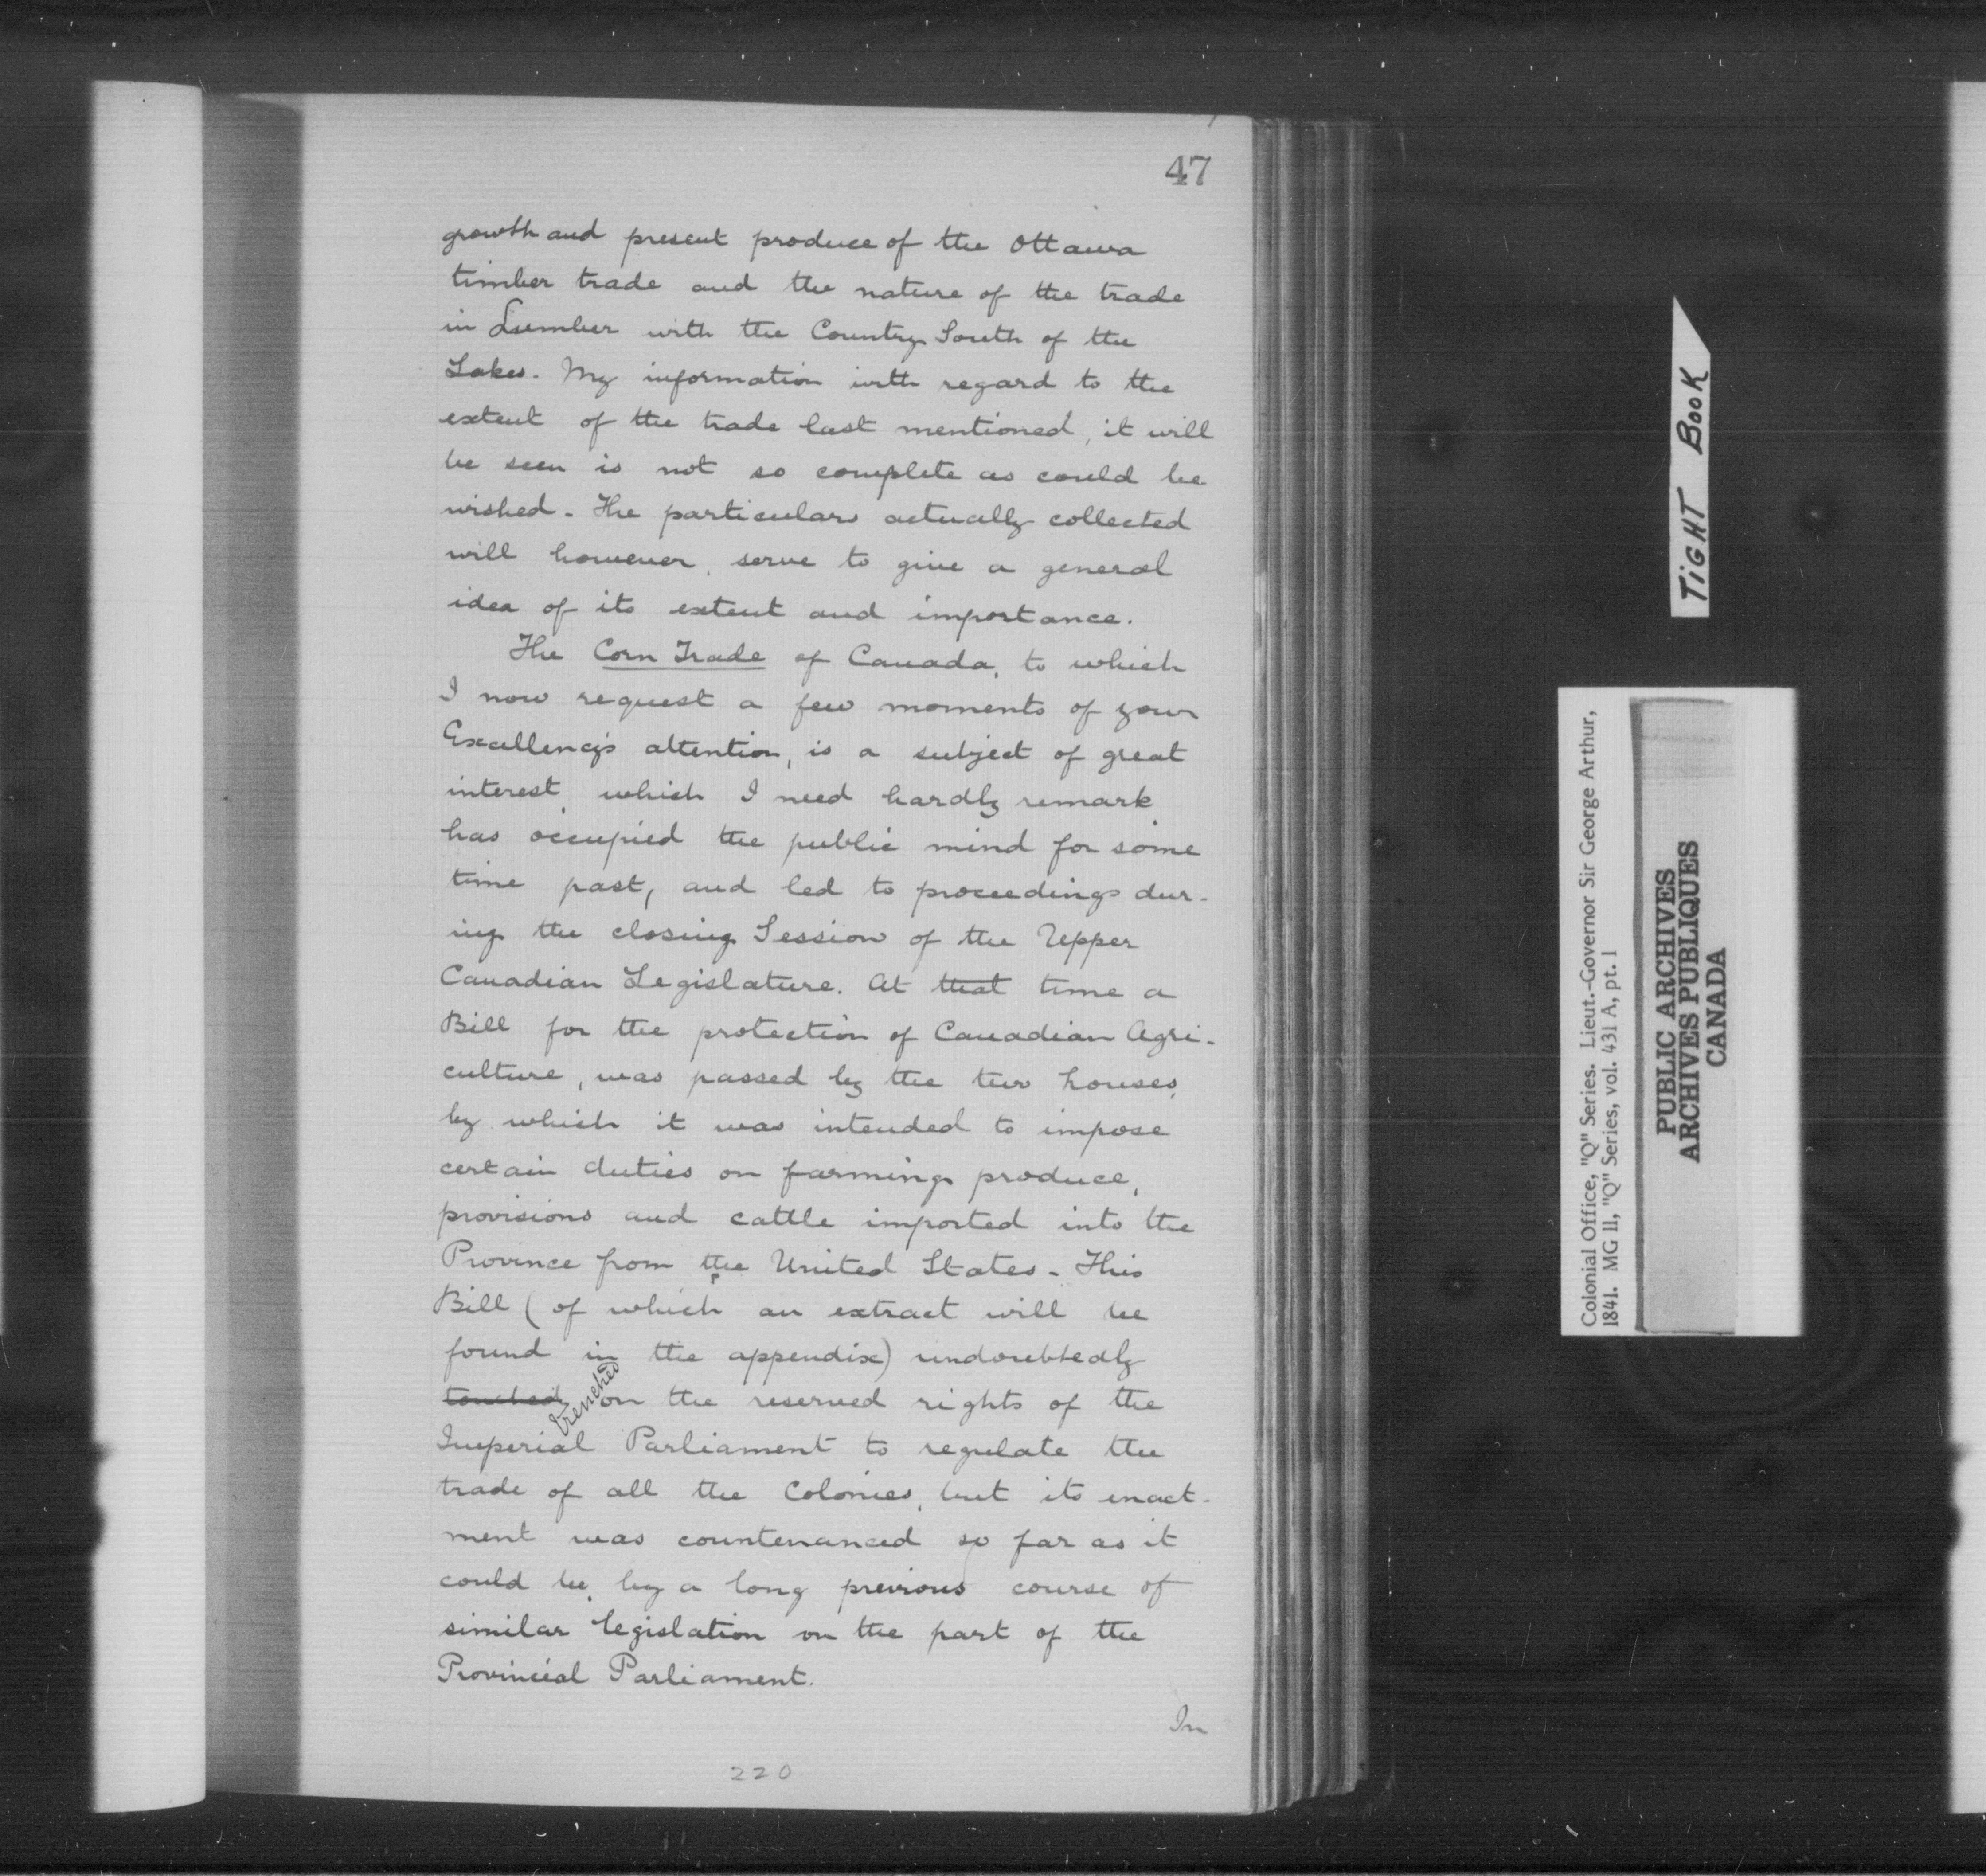 47
growth and present produce of the Ottawa
timber trade and the nature of the trade
in Lumber with the Country South of the
Lakes. My information with regard to the
extent of the trade last mentioned, it will
be seen is not so complete as could be
wished. The particulars actually collected
will however, serve to give a general
idea of its extent and importance.
The Corn Trade of Canada, to which
I now request a few moments of your
Excellency's attention, is a subject of great
interest, which I need hardly remark,
has occupied the public mind for some
time past, and led to proceedings dur-
ing the closing Session of the Upper
Canadian Legislature. At that time a
Bill for the protection of Canadian Agri-
culture, was passed by the two houses,
by which it was intended to impose
certain duties on farming produce,
provisions and cattle imported into the
Province from the United States. This
Bill (of which an extract will be
found in the appendix) undoubtedly
touched trenched on the reserved rights of the
Imperial Parliament to regulate the
trade of all the Colonies, but its enact-
ment was countenanced so far as it
could be, by a long previous course of
similar legislation on the part of the
Provincial Parliament.
In
220
TIGHT BOOK
Colonial Office, "Q" Series. Lieut.-Governor Sir George Arthur,
1841. MG 11, "Q" Series, vol. 431 A, pt. 1
PUBLIC ARCHIVES
ARCHIVES PUBLIQUES
CANADA